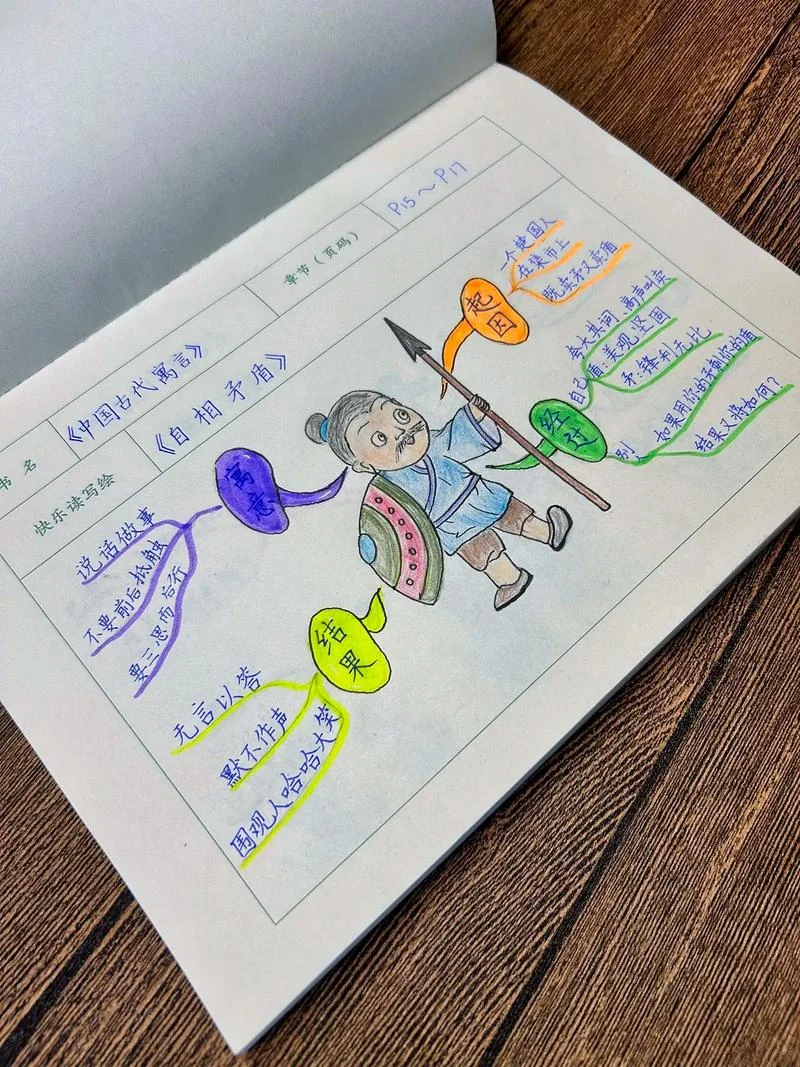 书名
《中国古代寓言》
章节（页码）
P15～P17
快乐读写绘
《自相矛盾》
起因
一个楚国人
在集市上
既卖矛又卖盾
经过
夸大其词、高声叫卖
自己
盾:美观坚固
矛:锋利无比
别人
如果用你的矛刺你的盾
结果又将如何?
结果
无言以答
默不作声
围观人哈哈大笑
寓意
说话做事
不要前后抵触
要三思而后行